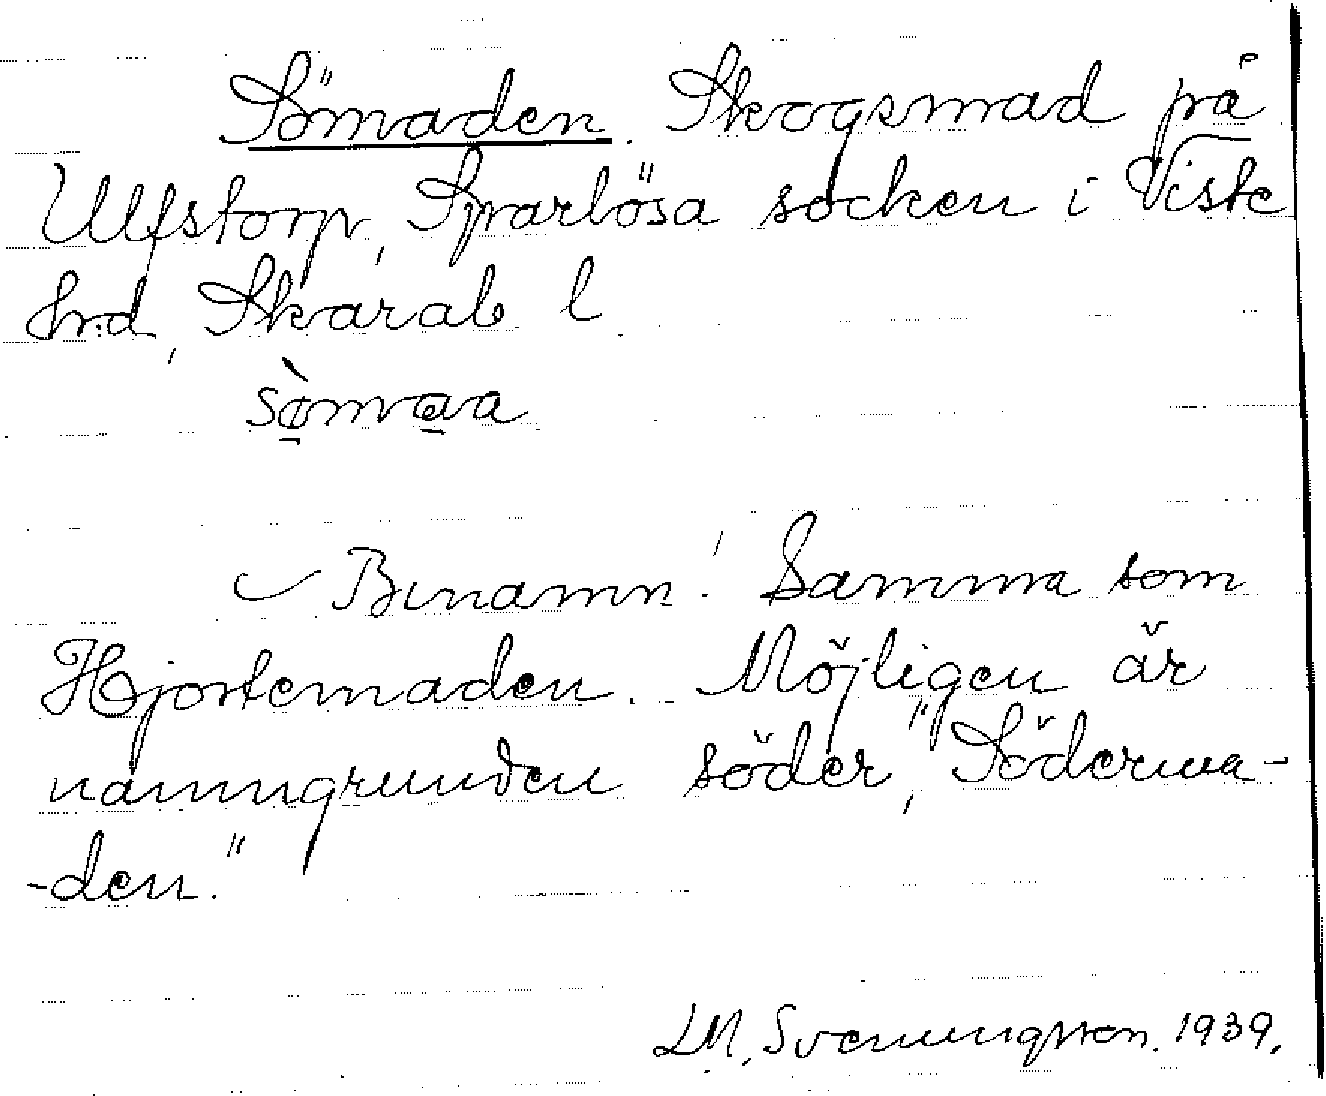 Sömaden. Skogsmad på
Ulfstorp, Sparlösa socken i Viste
hrd, Skarab l
sømaa
Binamn! Samma som
Hjortemaden. Möjligen är
namngrunden söder, "Söderma-
-den."
LM, Svenungsson. 1939.